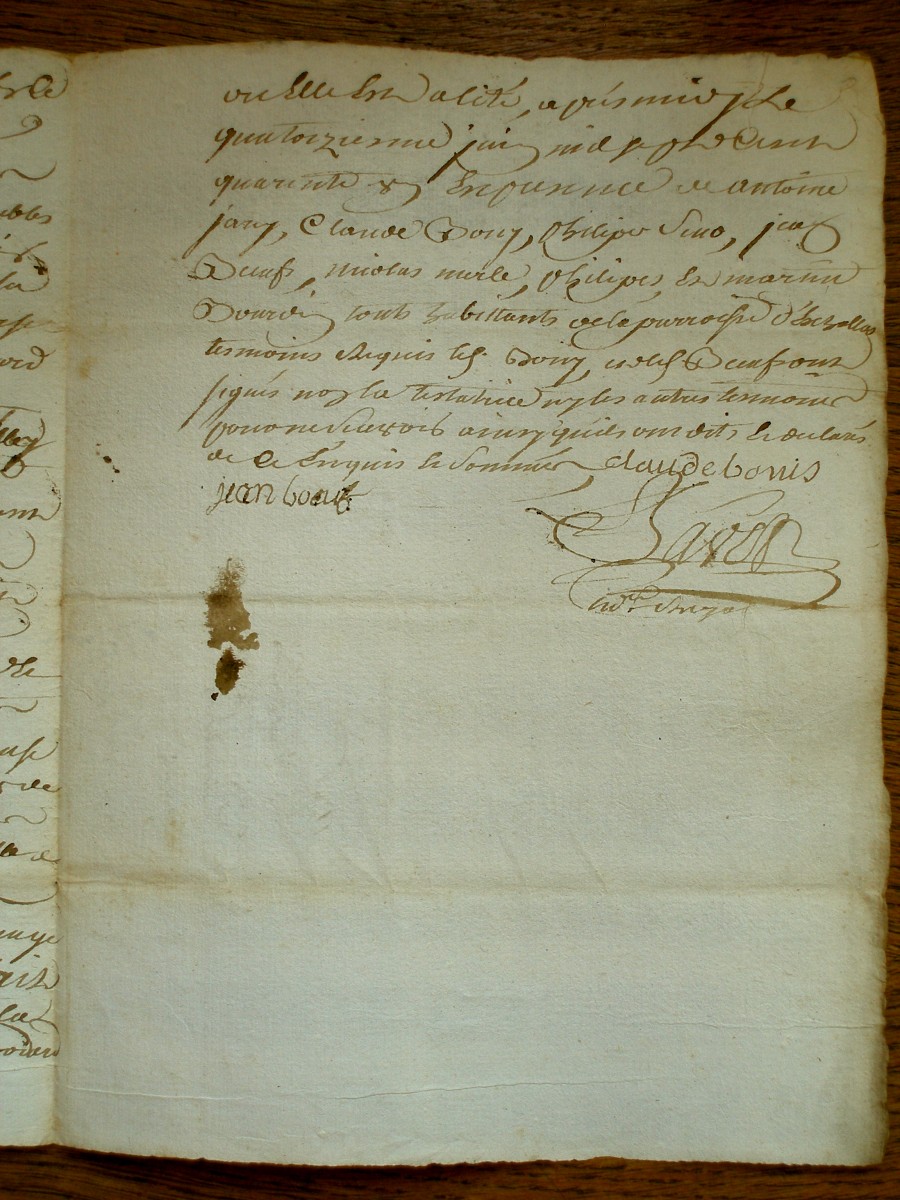 ou Elle Est alité, apres midy Le
quatorzieme juin mil sept Cent
quarente & En presence de antoine
jany, Claude Bony, philipes jean
Beuf, nicolas merle, philipes, Et martin
Bourdin touts habittants de la parroisse d'Echallas
temoins Requis les Bony, et Beuf ont
signés non la testatrice ny les autres temoins
pour ne scavoir ainsy quils ont dits & declarés
de Ce Enquis & Sommés claude bonis
jean beuf
nore Royal